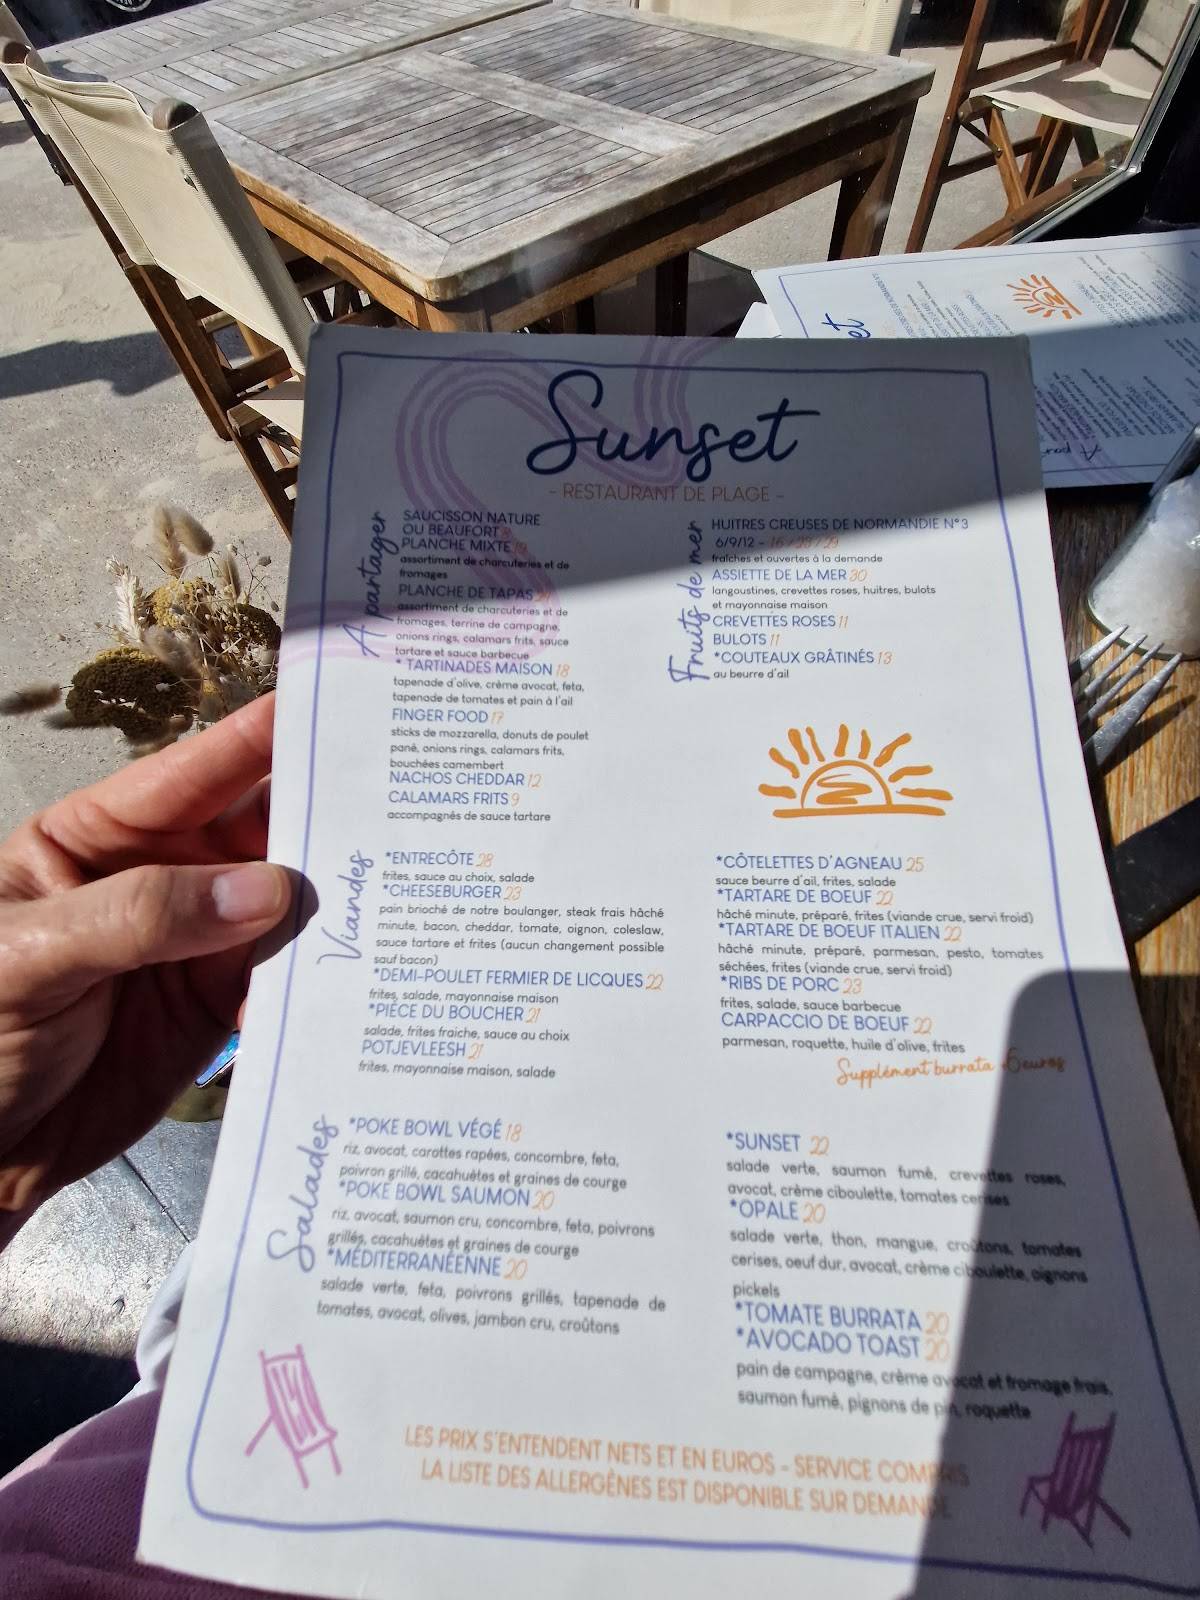 Sunset
- RESTAURANT DE PLAGE -
A partager
SAUCISSON NATURE
OU BEAUFORT
PLANCHE MIXTE 19
assortiment de charcuteries et de
fromages
PLANCHE DE TAPAS
assortiment de charcuteries et de
fromages, terrine de campagne,
onions rings, calamars frits, sauce
tartare et sauce barbecue
* TARTINADES MAISON 18
tapenade d'olive, crème avocat, feta,
tapenade de tomates et pain à l'ail
FINGER FOOD 17
sticks de mozzarella, donuts de poulet
pané, onions rings, calamars frits,
bouchées camembert
NACHOS CHEDDAR 12
CALAMARS FRITS 9
accompagnés de sauce tartare
Fruits de mer
HUITRES CREUSES DE NORMANDIE N°3
6/9/12 - 16 / 23 / 29
fraîches et ouvertes à la demande
ASSIETTE DE LA MER 30
langoustines, crevettes roses, huitres, bulots
et mayonnaise maison
CREVETTES ROSES 11
BULOTS 11
*COUTEAUX GRÂTINÉS 13
au beurre d'ail
Viandes
*ENTRECÔTE 28
frites, sauce au choix, salade
*CHEESEBURGER 23
pain brioché de notre boulanger, steak frais hâché
minute, bacon, cheddar, tomate, oignon, coleslaw,
sauce tartare et frites (aucun changement possible
sauf bacon)
*DEMI-POULET FERMIER DE LICQUES 22
frites, salade, mayonnaise maison
*PIÈCE DU BOUCHER 21
salade, frites fraiche, sauce au choix
POTJEVLEESH 21
frites, mayonnaise maison, salade
*CÔTELETTES D'AGNEAU 25
sauce beurre d'ail, frites, salade
*TARTARE DE BOEUF 22
hâché minute, préparé, frites (viande crue, servi froid)
*TARTARE DE BOEUF ITALIEN 22
hâché minute, préparé, parmesan, pesto, tomates
séchées, frites (viande crue, servi froid)
*RIBS DE PORC 23
frites, salade, sauce barbecue
CARPACCIO DE BOEUF 22
parmesan, roquette, huile d'olive, frites
Supplément burrata 6 euros
Salades
*POKE BOWL VÉGÉ 18
riz, avocat, carottes rapées, concombre, feta,
poivron grillé, cacahuètes et graines de courge
*POKE BOWL SAUMON 20
riz, avocat, saumon cru, concombre, feta, poivrons
grillés, cacahuètes et graines de courge
*MÉDITERRANÉENNE 20
salade verte, feta, poivrons grillés, tapenade de
tomates, avocat, olives, jambon cru, croûtons
*SUNSET 22
salade verte, saumon fumé, crevettes roses,
avocat, crème ciboulette, tomates cerises
*OPALE 20
salade verte, thon, mangue, croûtons, tomates
cerises, oeuf dur, avocat, crème ciboulette, oignons
pickels
*TOMATE BURRATA 20
*AVOCADO TOAST 20
pain de campagne, crème avocat et fromage frais,
saumon fumé, pignons de pin, roquette
LES PRIX S'ENTENDENT NETS ET EN EUROS - SERVICE COMPRIS
LA LISTE DES ALLERGÈNES EST DISPONIBLE SUR DEMANDE